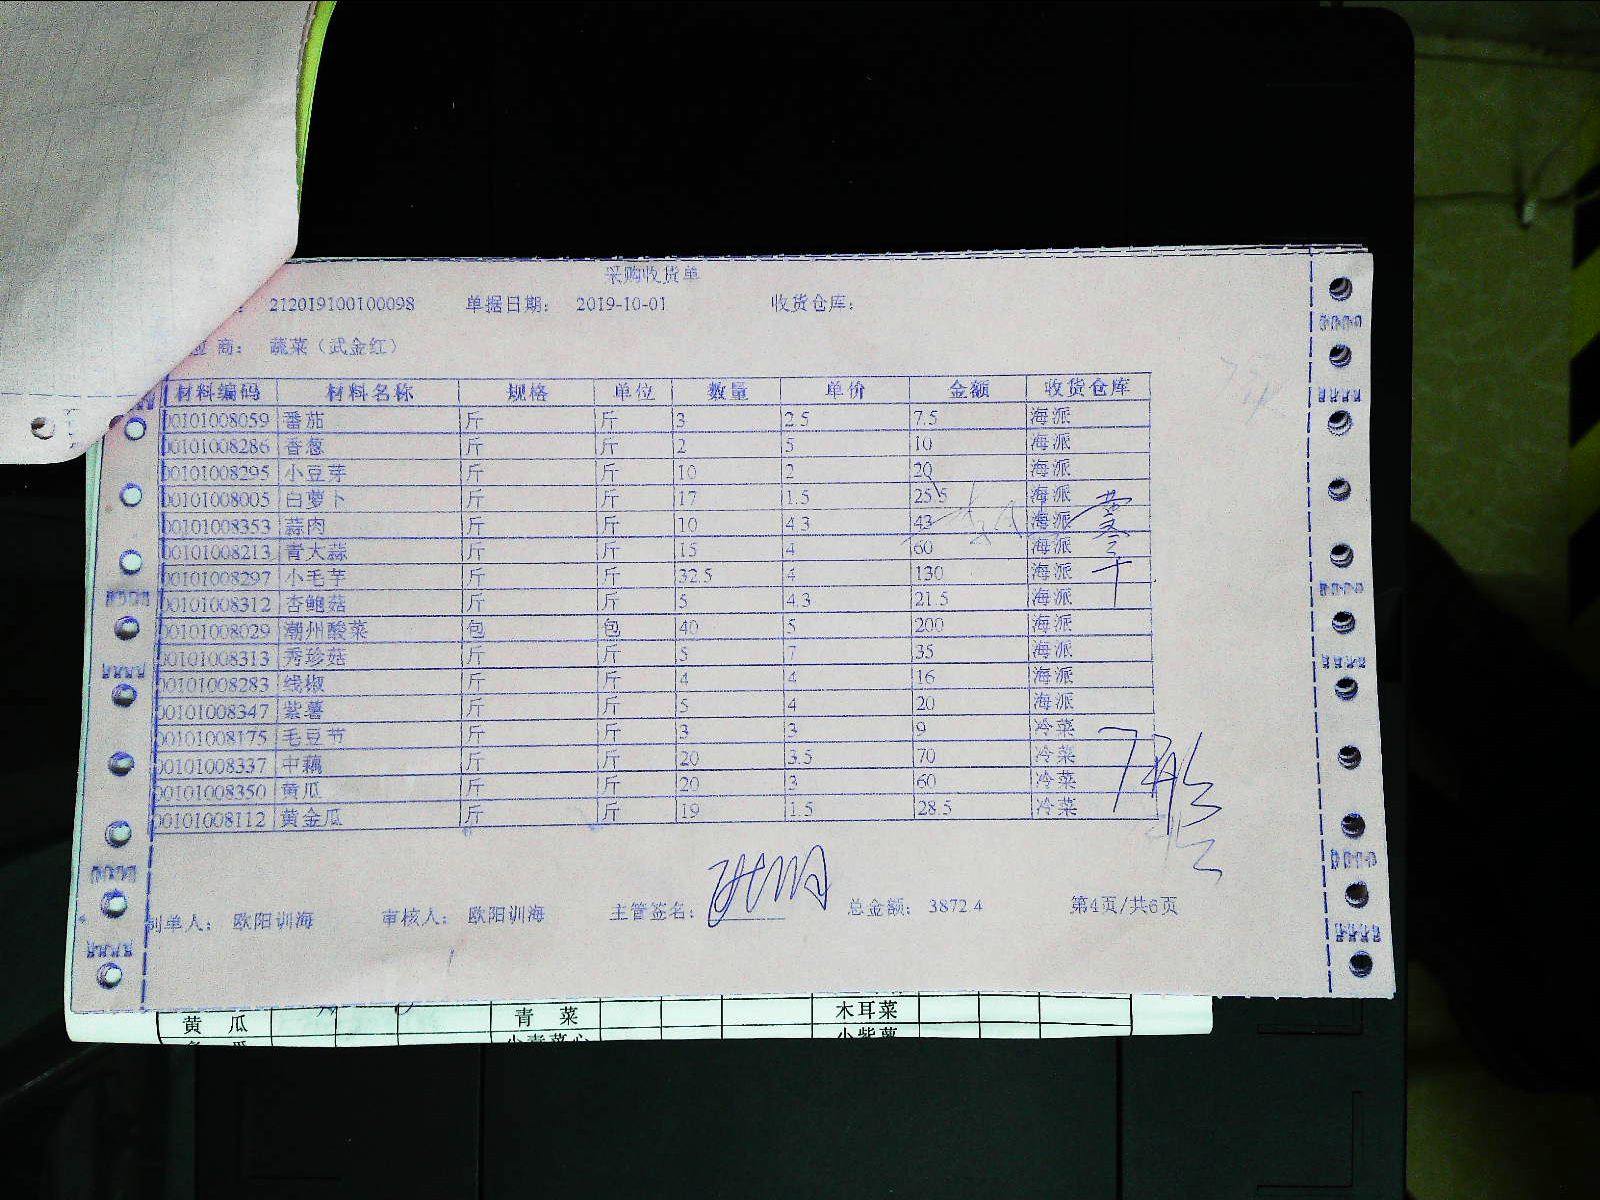 采购收货单
: 212019100100098 单据日期: 2019-10-01 收货仓库:
应商: 蔬菜(武金红)
材料编码 材料名称 规格 单位 数量 单价 金额 收货仓库
00101008059 番茄 斤 斤 3 2.5 7.5 海派
00101008286 香葱 斤 斤 2 5 10 海派
00101008295 小豆芽 斤 斤 10 2 20 海派
00101008005 白萝卜 斤 斤 17 1.5 25.5 海派
00101008353 蒜肉 斤 斤 10 4.3 43 海派
00101008213 青大蒜 斤 斤 15 4 60 海派
00101008297 小毛芋 斤 斤 32.5 4 130 海派
00101008312 杏鲍菇 斤 斤 5 4.3 21.5 海派
00101008029 潮州酸菜 包 包 40 5 200 海派
00101008313 秀珍菇 斤 斤 5 7 35 海派
00101008283 线椒 斤 斤 4 4 16 海派
00101008347 紫薯 斤 斤 5 4 20 海派
00101008175 毛豆节 斤 斤 3 3 9 冷菜
00101008337 中藕 斤 斤 20 3.5 70 冷菜
00101008350 黄瓜 斤 斤 20 3 60 冷菜
00101008112 黄金瓜 斤 斤 19 1.5 28.5 冷菜
制单人: 欧阳训海 审核人: 欧阳训海 主管签名: 总金额: 3872.4 第4页/共6页
黄瓜 青菜 木耳菜